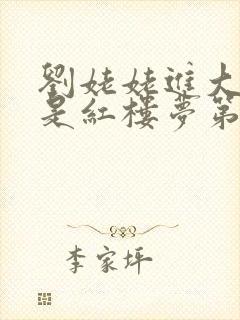 劉姥姥進大
是紅樓夢第
李家坪